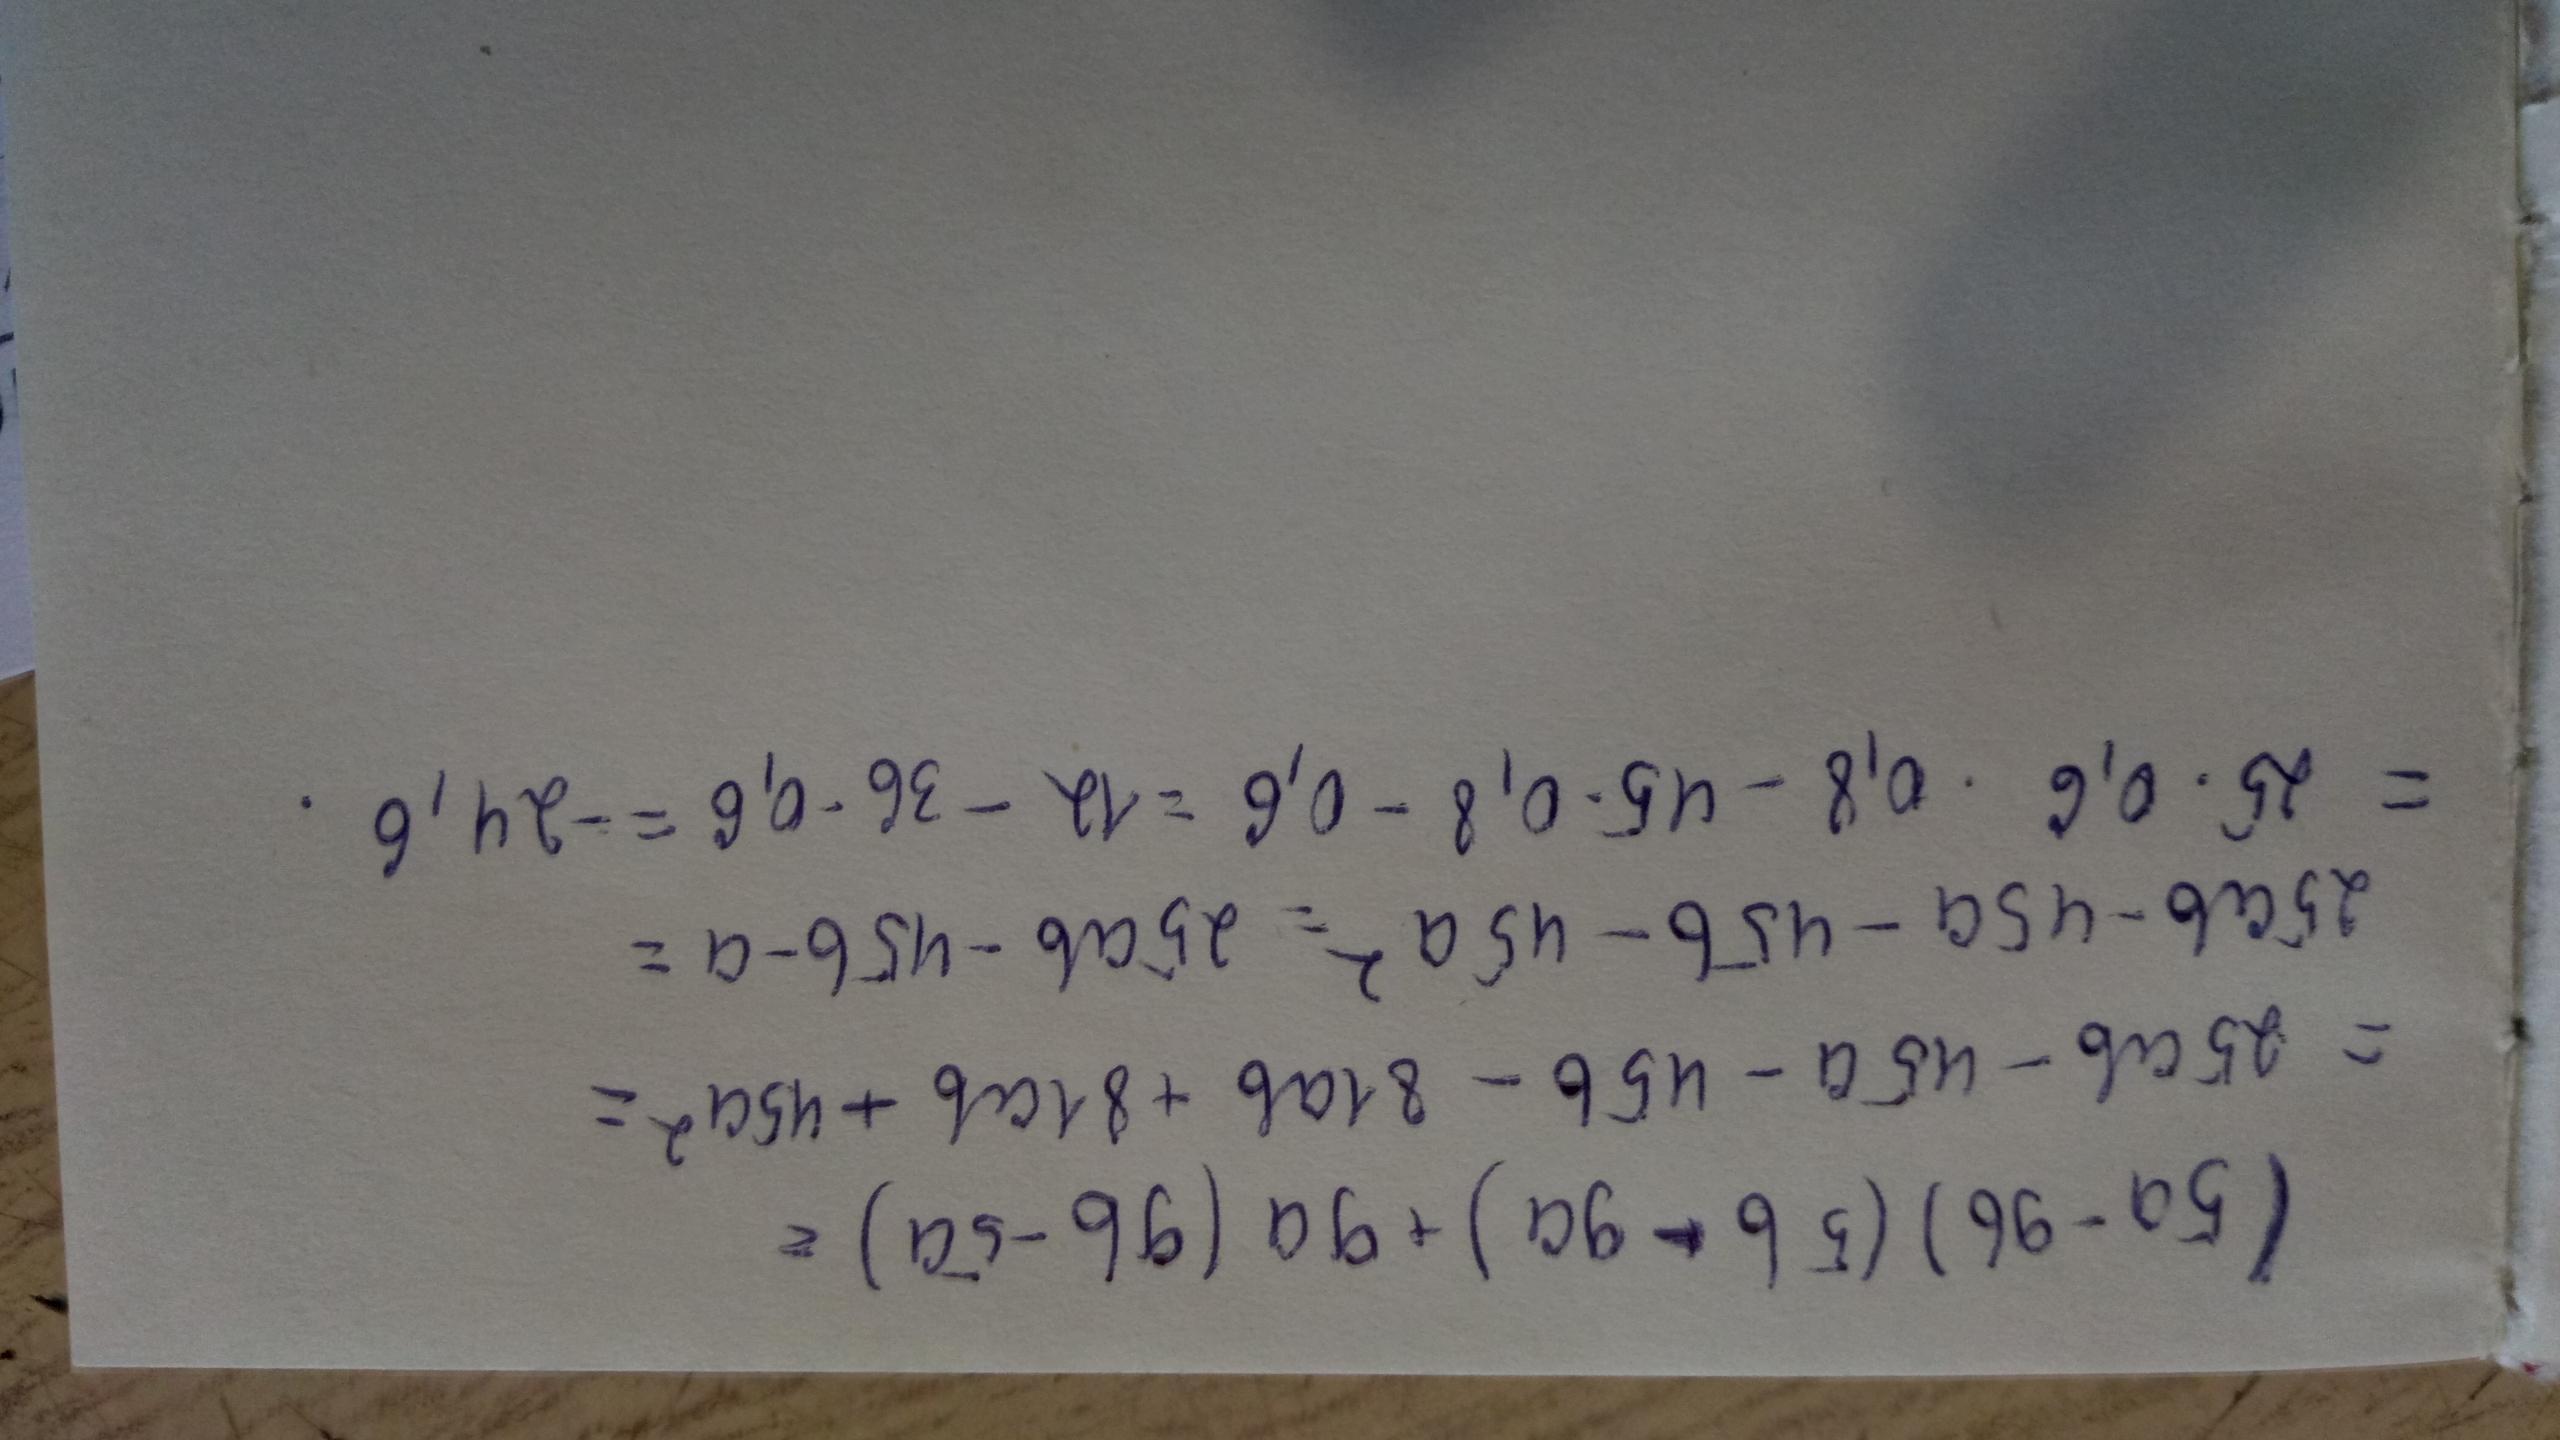 (5a-9b)(5b-9a)+9a(9b-5a)=
=25ab-45a-45b-81ab+81ab+45a²=
25ab-45a-45b-45a²=25ab-45b-a=
=25·0,6·0,8-45·0,8-0,6=12-36-0,6=-24,6.